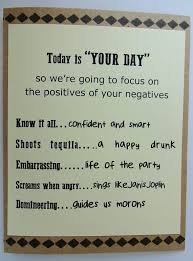 Today is "YOUR DAY"
so we're going to focus on
the positives of your negatives
Know it all...confident and smart
Shoots tequila.....a happy drunk
Embarrassing......life of the party
Screams when angry....sings like Janis Joplin
Domineering....guides us morons